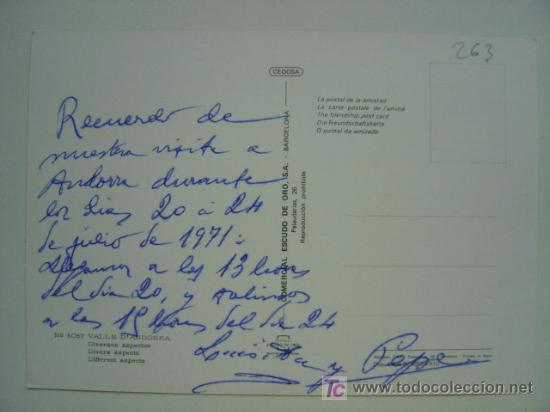 263
CEDOSA
Recuerdo de
nuestra visita a
Andorra durante
los dias 20 a 24
de julio de 1971:
llegamos a las 13 horas
del dia 20, y salimos
a las 15 horas del dia 24
y Pepe
La postal de la amistad
La carte postale de l'amitié
The friendship post card
Die Freundschaftskarte
O postal da amizade
COMERCIAL ESCUDO DE ORO, S.A. - BARCELONA
Palaudarias, 26
Reproducción prohibida
VALLS D'ANDORRA
Diversos aspectos
Divers aspects
Different aspects
todocoleccion
www.todocoleccion.net